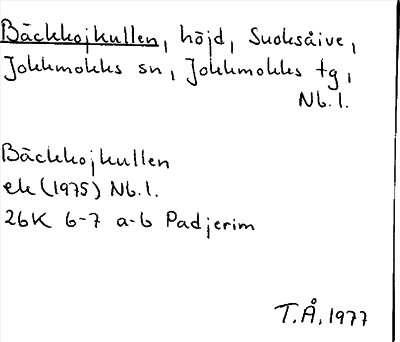 Bäckkojkullen, höjd, Suoksåive,
Jokkmokks sn, Jokkmokks tg,
Nb.l.
Bäckkojkullen
ek (1975) Nb.l.
26K 6-7 a-b Padjerim
T.Å. 1977